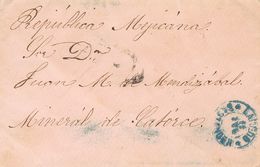 República Mejicana
Sor Dn
Juan M. de Mendizábal
Mineral de Catorce.